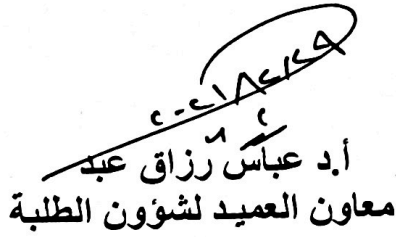 أ.د عباس رزاق عبد
معاون العميد لشؤون الطلبة